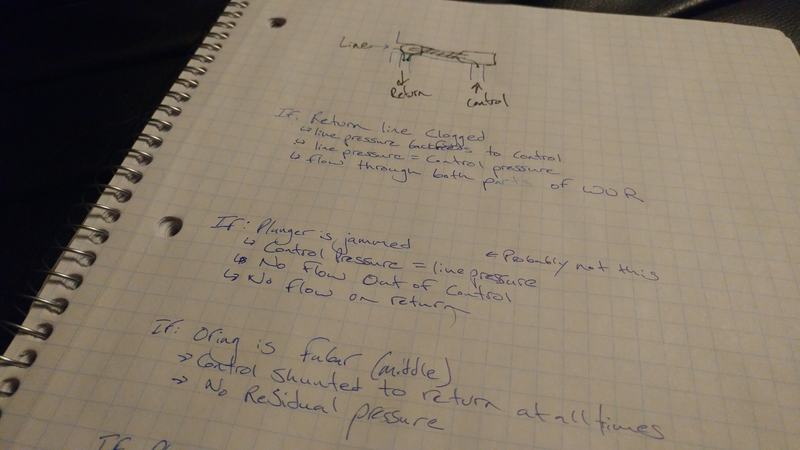 Line
Return
Control
If: Return line Clogged
↳ line pressure backfeeds to control
↳ line pressure = Control pressure
↳ flow through both parts of WUR
If: Plunger is jammed
↳ Control Pressure = line pressure ← Probably not this
↳ No flow Out of Control
↳ No flow on return
If: Oring is fubar (middle)
→ Control shunted to return at all times
→ No Residual pressure
If